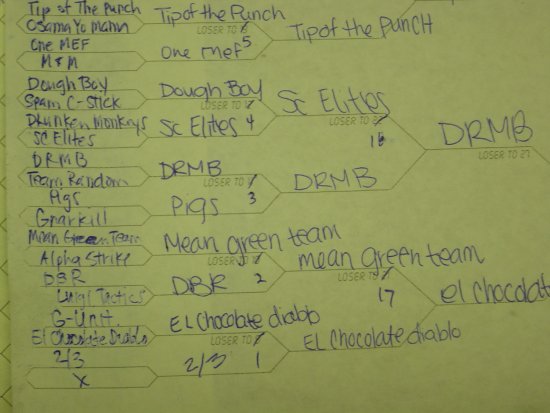 Tip of The Punch
Osama Yo Mama
One MEF
M & M
Dough Boy
Spam C-Stick
Drunken Monkeys
SC Elites
DRMB
Team Random
Pigs
Gnarkill
Mean Green Team
Alpha Strike
DBR
Tactics
G-Unit
El Chocolate Diablo
2/3
X
Tip of the Punch
LOSER TO
One Mef 5
Dough Boy
LOSER TO
SC Elites 4
DRMB
LOSER TO
Pigs 3
Mean green team
LOSER TO
DBR 2
EL Chocolate diablo
LOSER TO
2/3 1
Tip of the PUNCH
SC Elites
LOSER TO
18
DRMB
mean green team
LOSER TO
17
EL Chocolate diablo
DRMB
LOSER TO 27
el chocolat